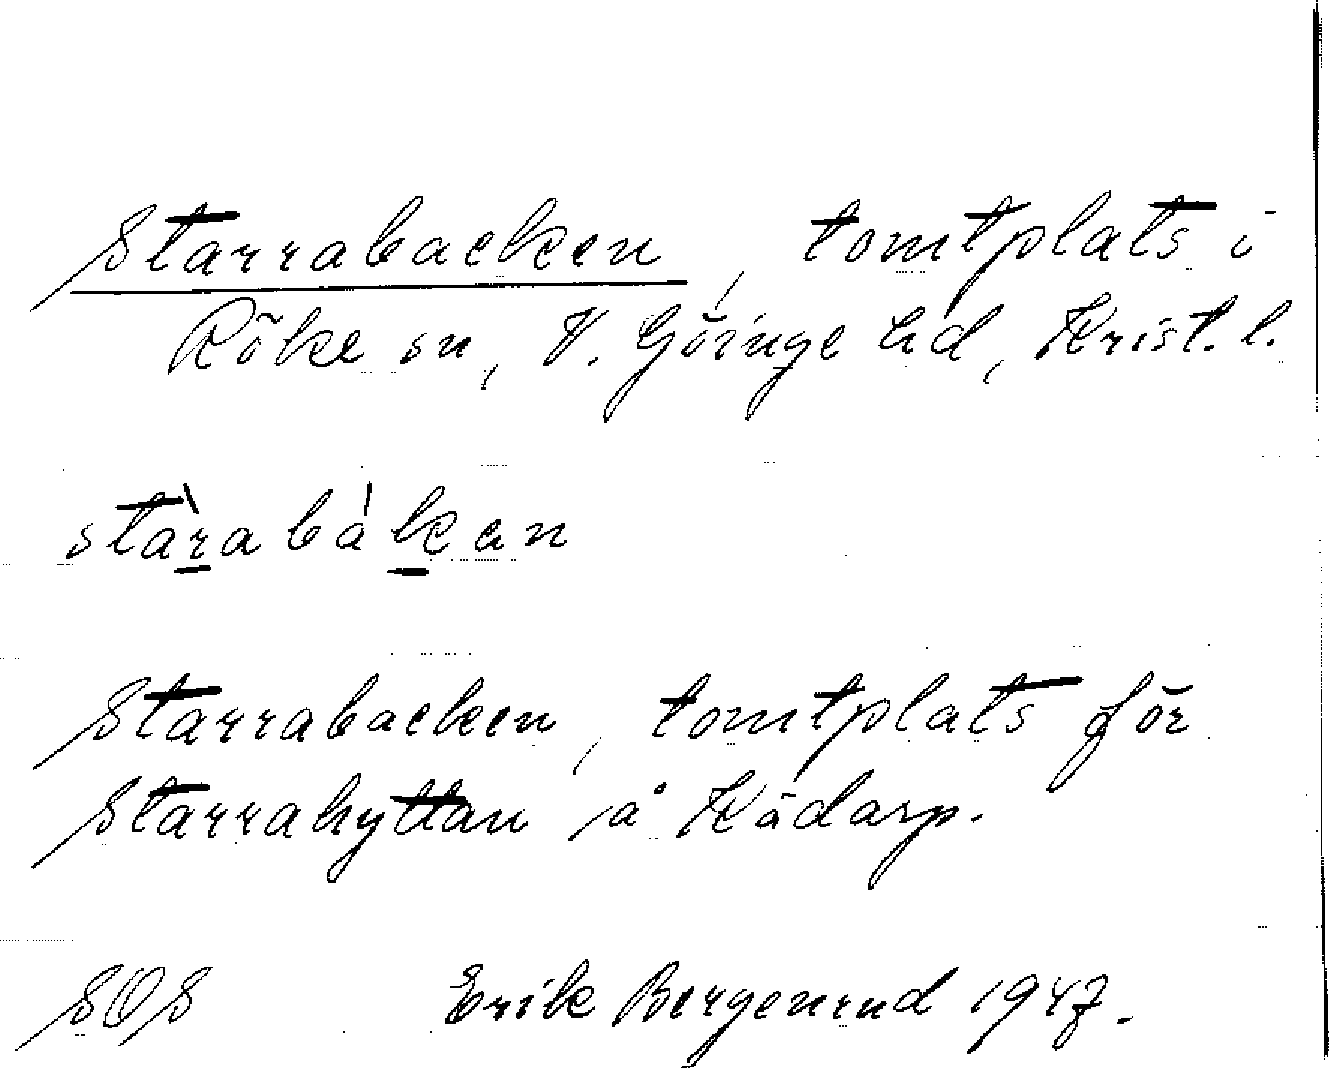 Starrabacken, tomtplats i
Röke sn, V. Göinge hd, Krist. l.
stàrabákan
Starrabacken, tomtplats för
Starrahyttan på Kådarp.
SOS Erik Bergenrud 1947.